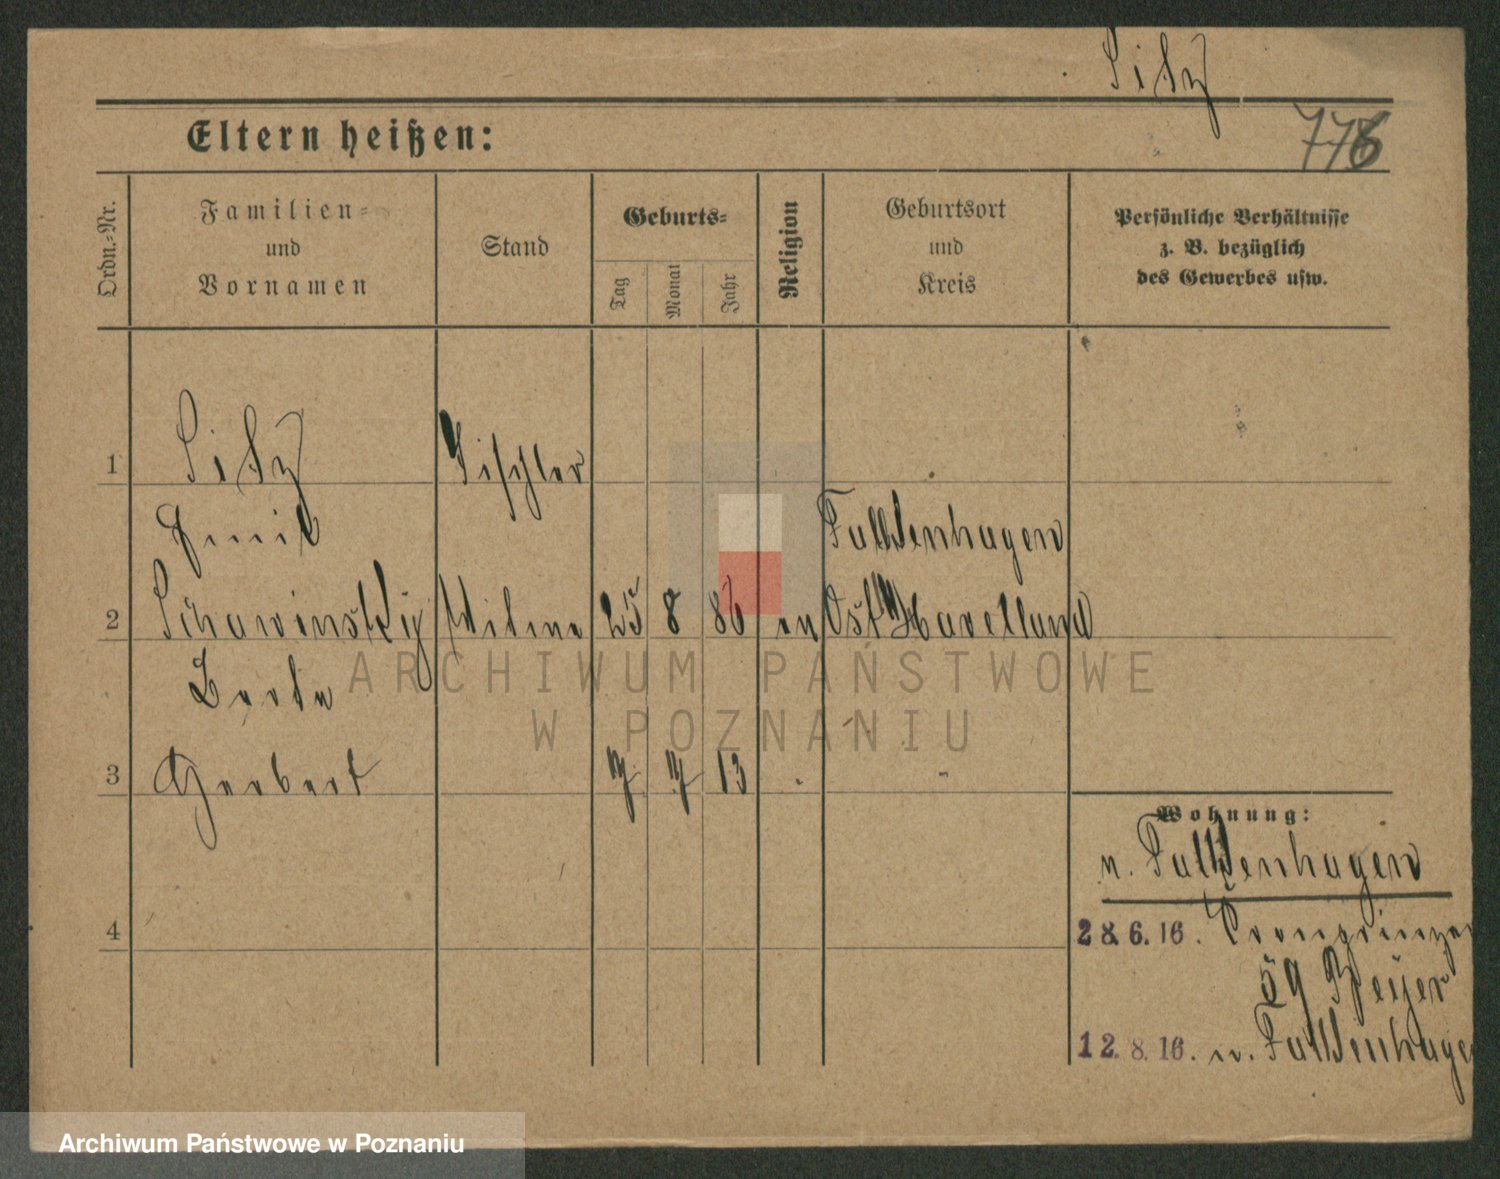 Eltern heißen:
776
Ordn.-Nr.
Familien-
und
Vornamen
Stand
Geburts-
Tag
Monat
Jahr
Religion
Geburtsort
und
Kreis
Persönliche Verhältnisse
z. B. bezüglich
des Gewerbes usw.
1
Tischler
Emil
Falkenhagen
2
Schawinsky
Witwe
25 8 86
Ost Havelland
3
Herbert
7 7 13
Wohnung:
n. Falkenhagen
4
28.6.16. Kronprinzen
59
12.8.16. n. Falkenhage
ARCHIWUM PAŃSTWOWE
W POZNANIU
Archiwum Państwowe w Poznaniu